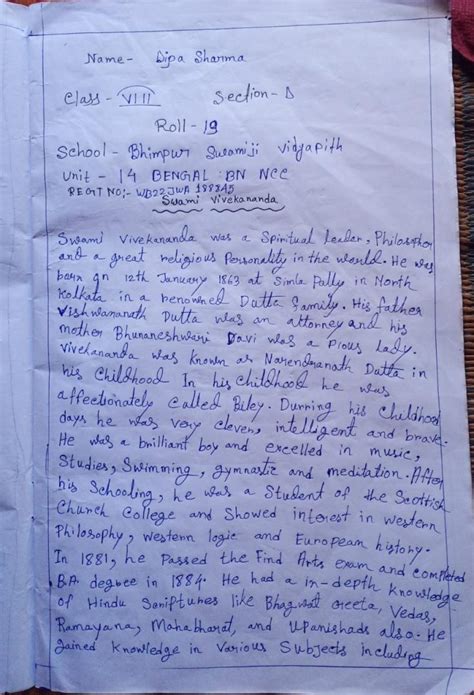 Name- Dipa Sharma
Class - VIII Section - D
Roll - 19
School - Bhimpur Swamiji Vidyapith
Unit - 14 BENGAL BN NCC
REGT NO:- WB22JWA188345
Swami Vivekananda
Swami Vivekananda was a Spiritual leader, Philosopher
and a great religious Personality in the world. He was
born on 12th January 1863 at Simla Pally in North
Kolkata in a renowned Dutta family. His father
Vishwananath Dutta was an attorney and his
mother Bhunaneshwari Davi was a Pious lady.
Vivekananda was known as Narendranath Dutta in
his Childhood In his Childhood he was
affectionately Called Biley. Durning his Childhood
days he was very clever, intelligent and brave.
He was a brilliant boy and excelled in music,
Studies, Swimming, gymnastic and meditation. After
his Schooling, he was a Student of the Scottish
Church College and Showed interest in western
Philosophy, western logic and European history.
In 1881, he Passed the Find Arts Exam and completed
B.A. degree in 1884. He had a in-depth Knowledge
of Hindu Saniptunes like Bhagwat Greeta, Vedas,
Ramayana, Mahabharat, and Upanishads also. He
gained Knowledge in Various Subjects including